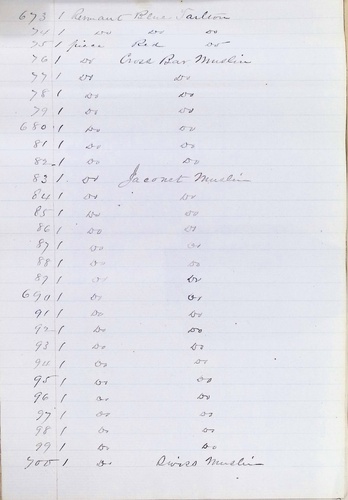 673 1 Remnant Blue Tarlton
74 1 Do Do Do
75 1 piece Red Do
76 1 Do Cross Bar Muslin
77 1 Do Do
78 1 Do Do
79 1 Do Do
680 1 Do Do
81 1 Do Do
82 1 Do Do
83 1 Do Jaconet Muslin
84 1 Do Do
85 1 Do Do
86 1 Do Do
87 1 Do Do
88 1 Do Do
89 1 Do Do
690 1 Do Do
91 1 Do Do
92 1 Do Do
93 1 Do Do
94 1 Do Do
95 1 Do Do
96 1 Do Do
97 1 Do Do
98 1 Do Do
99 1 Do Do
700 1 Do Swiss Muslin